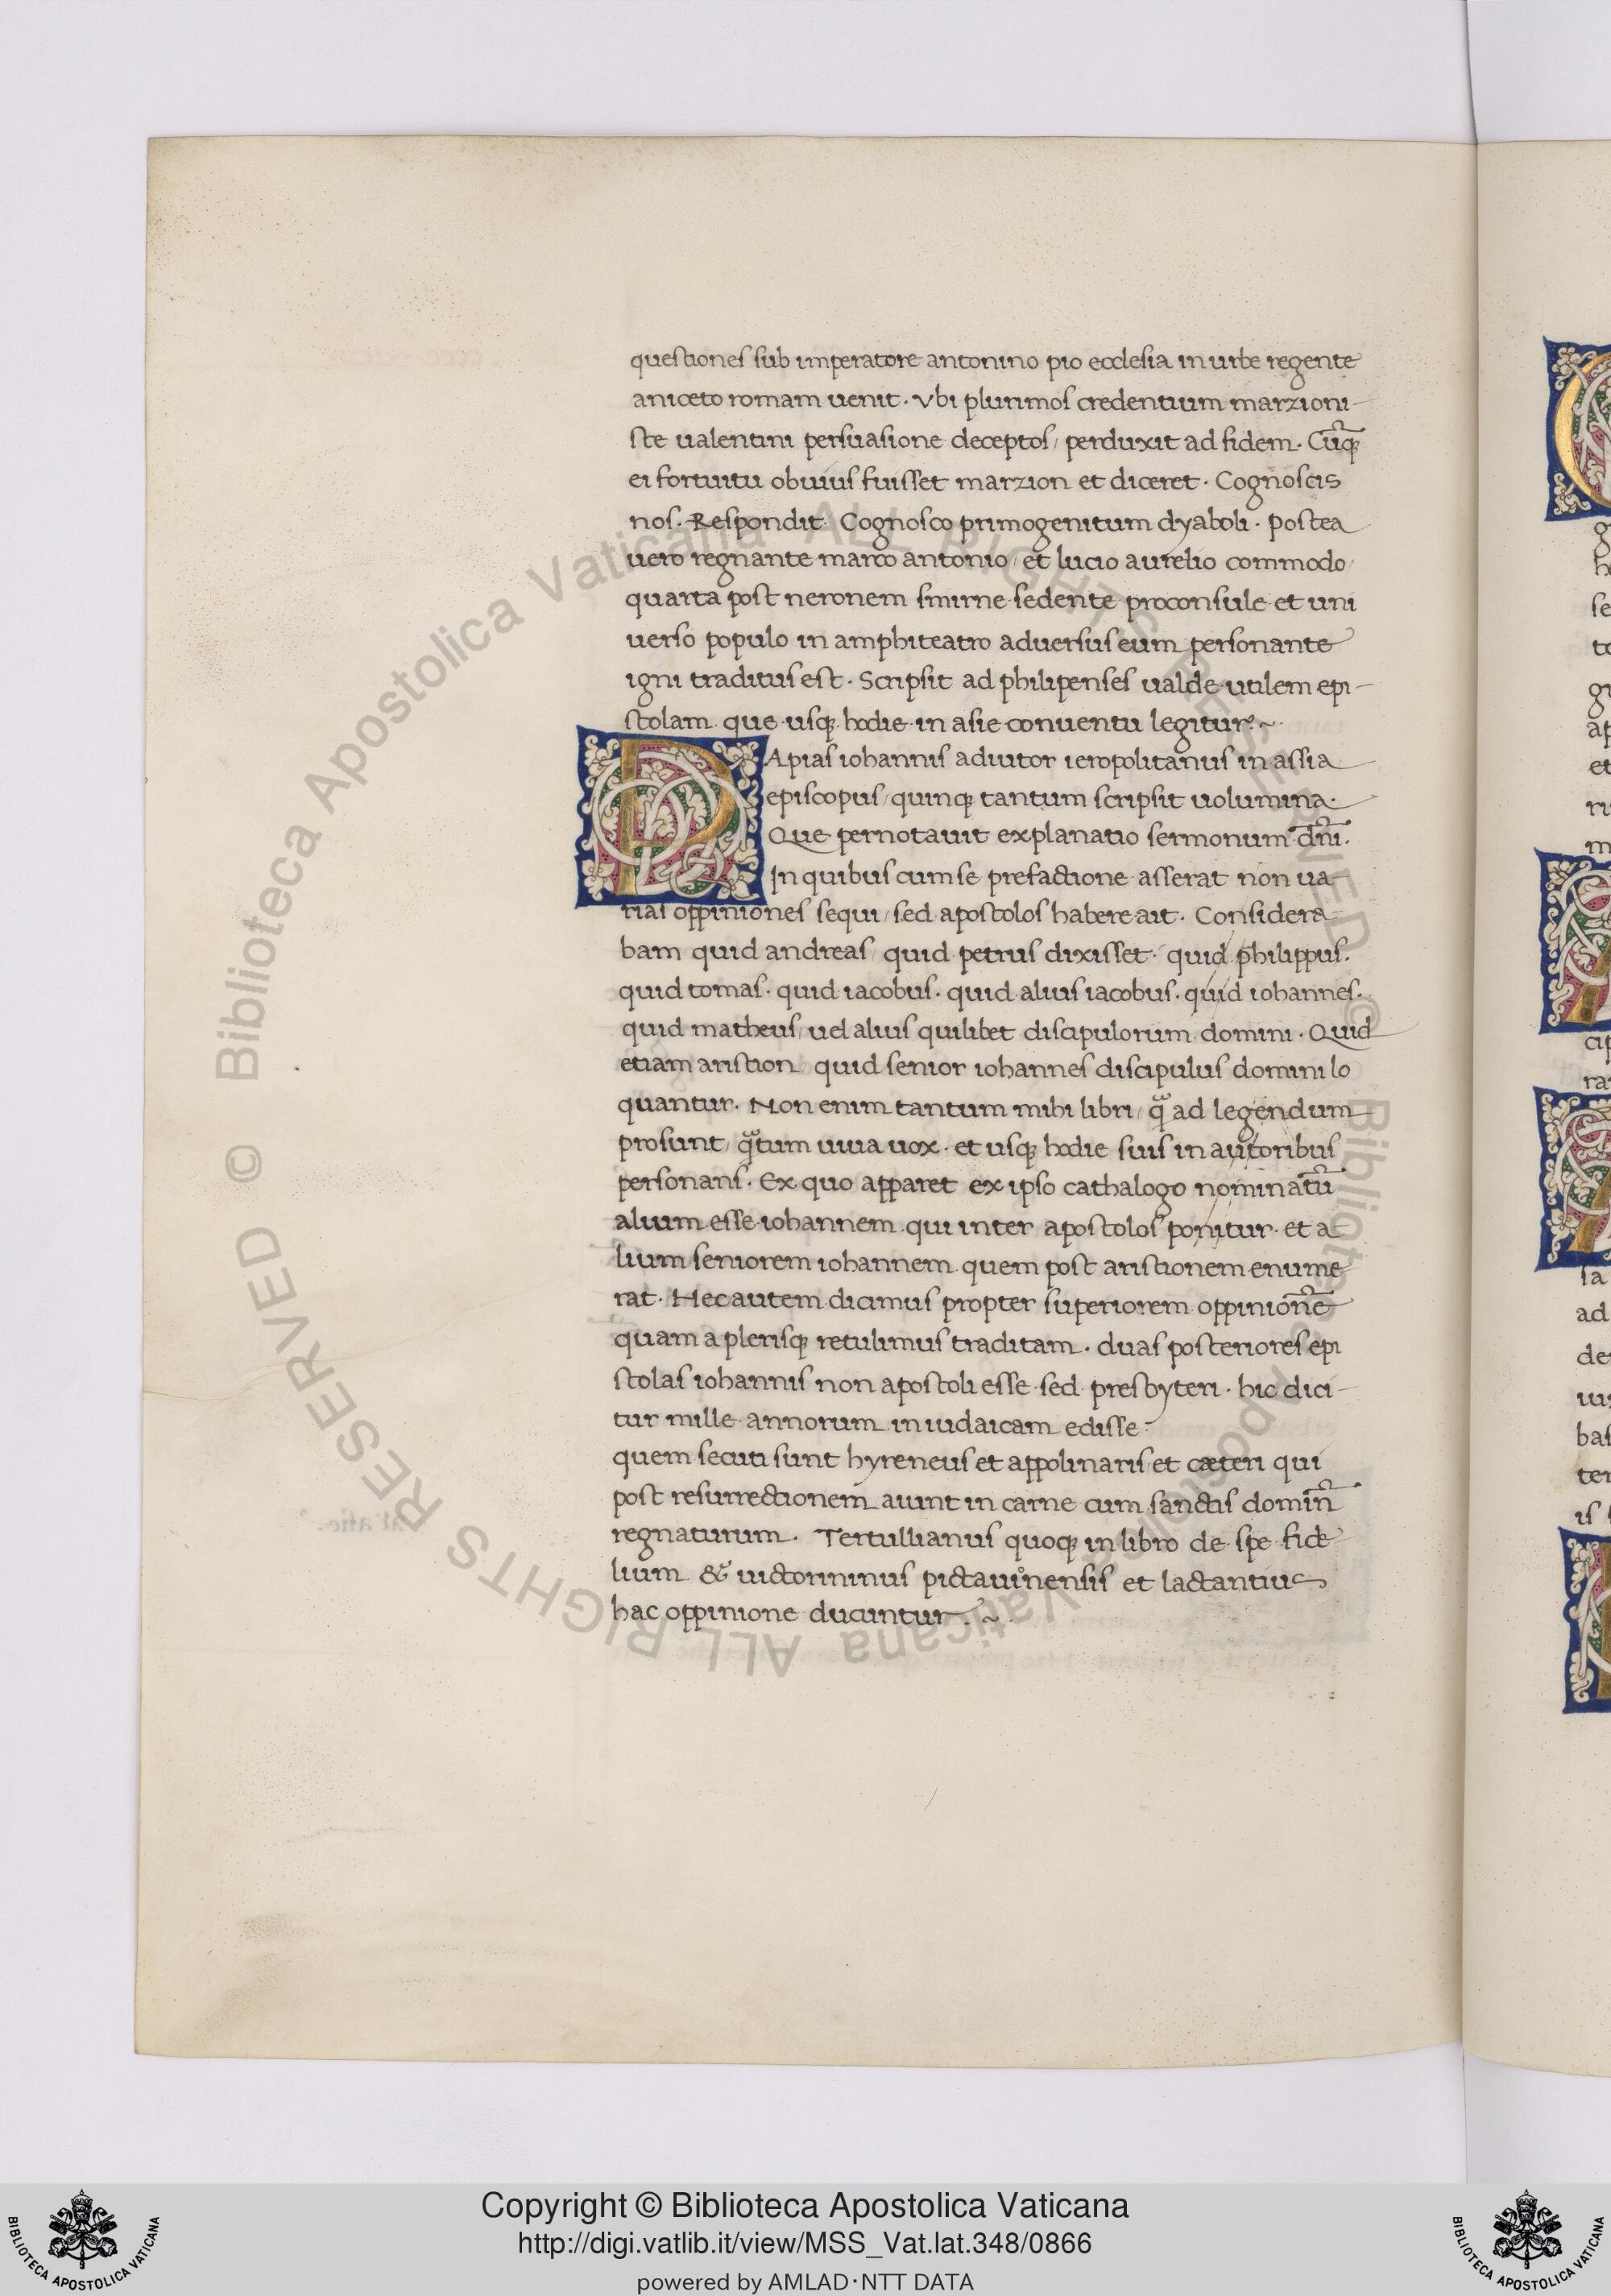 questiones sub imperatore antonino pio ecclesia in urbe regente
aniceto romam uenit. Vbi plurimos credentium marzioni-
ste ualentini persuasione deceptos, perduxit ad fidem. Cūq̃
ei fortuitu obuius fuisset marzion et diceret. Cognoscis
nos. Respondit. Cognosco primogenitum dyaboli. postea
uero regnante marco antonio, et lucio aurelio commodo,
quarta post neronem smirne sedente proconsule et uni
uerso populo in amphiteatro aduersus eum personante
igni traditus est. Scripsit ad philipenses ualde utilem epi-
stolam que usq̃ hodie in asie conuentu legitur.~
PApias iohannis adiutor ieropolitanus in assia
episcopus, quinq̃ tantum scripsit uolumina.
Que pernotauit explanatio sermonum dn̄i.
In quibus cum se prefactione asserat non ua-
rias oppiniones sequi, sed apostolos habere ait. Considera-
bam quid andreas, quid petrus dixisset. quid philippus.
quid tomas. quid iacobus. quid alius iacobus. quid iohannes.
quid matheus, uel alius quilibet discipulorum domini. Quid
etiam aristion quid senior iohannes discipulus domini lo
quantur. Non enim tantum mihi libri, q̃ ad legendum
prosunt, q̃tum uiua uox. et usq̃ hodie suis in autoribus
personans. Ex quo apparet ex ipso cathalogo nominatū
alium esse iohannem qui inter apostolos ponitur. et a-
lium seniorem iohannem quem post aristionem enume-
rat. Hec autem dicimus propter superiorem oppinionē
quam a plerisq̃ retulimus traditam. duas posteriores epi
stolas iohannis non apostoli esse sed presbyteri. hic dici-
tur mille annorum in iudaicam edisse
quem secuti sunt hyreneus et appolinaris et cæteri qui
post resurrectionem aiunt in carne cum sanctis domin̄
regnaturum. Tertullianus quoq̃ in libro de spe fide-
lium & uictorininus pictauinensis et lactantius
hac oppinione ducuntur.~
© Biblioteca Apostolica Vaticana ALL RIGHTS RESERVED
© Biblioteca Apostolica Vaticana ALL RIGHTS RESERVED
Copyright © Biblioteca Apostolica Vaticana
http://digi.vatlib.it/view/MSS_Vat.lat.348/0866
powered by AMLAD·NTT DATA
BIBLIOTECA APOSTOLICA VATICANA
BIBLIOTECA APOSTOLICA VATICANA